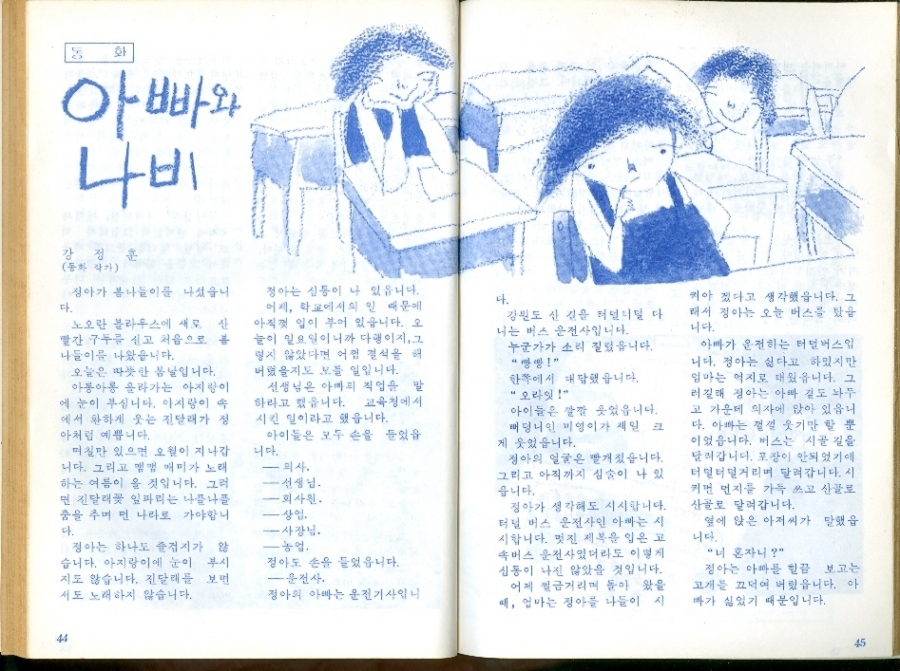 동 화
아빠와
나비
강 정 훈
(동화 작가)
정아가 봄나들이를 나섰읍니
다.
노오란 블라우스에 새로 산
빨간 구두를 신고 처음으로 봄
나들이를 나왔읍니다.
오늘은 따뜻한 봄날입니다.
아롱아롱 올라가는 아지랑이
에 눈이 부십니다. 아지랑이 속
에서 환하게 웃는 진달래가 정
아처럼 예쁩니다.
며칠만 있으면 오월이 지나갑
니다. 그리고 맴맴 매미가 노래
하는 여름이 올 것입니다. 그러
면 진달래꽃 잎파리는 나풀나풀
춤을 추며 먼 나라로 가야합니
다.
정아는 하나도 즐겁지가 않
습니다. 아지랑이에 눈이 부시
지도 않습니다. 진달래를 보면
서도 노래하지 않습니다.
정아는 심통이 나 있읍니다.
어제, 학교에서의 일 때문에
아직껏 입이 부어 있읍니다. 오
늘이 일요일이니까 다행이지, 그
렇지 않았다면 어쩜 결석을 해
버렸을지도 모를 일입니다.
선생님은 아빠의 직업을 말
하라고 했읍니다. 교육청에서
시킨 일이라고 했읍니다.
아이들은 모두 손을 들었읍
니다.
——의사.
——선생님.
——회사원.
——상업.
——사장님.
——농업.
정아도 손을 들었읍니다.
——운전사.
정아의 아빠는 운전기사입니
44
다.
강원도 산 길을 터덜터덜 다
니는 버스 운전사입니다.
누군가가 소리 질렀읍니다.
“빵빵!”
한쪽에서 대답했읍니다.
“오라잇!”
아이들은 깔깔 웃었읍니다.
뻐덩니인 미영이가 제일 크
게 웃었읍니다.
정아의 얼굴은 빨개졌읍니다.
그리고 아직까지 심술이 나 있
읍니다.
정아가 생각해도 시시합니다.
터덜 버스 운전사인 아빠는 시
시합니다. 멋진 제복을 입은 고
속버스 운전사였더라도 이렇게
심통이 나진 않았을 것입니다.
어제 훨금거리며 돌아 왔을
때, 엄마는 정아를 나들이 시
켜야 겠다고 생각했읍니다. 그
래서 정아는 오늘 버스를 탔읍
니다.
아빠가 운전하는 터덜버스입
니다. 정아는 싫다고 하였지만
엄마는 억지로 태웠읍니다. 그
러길래 정아는 아빠 곁도 놔두
고 가운데 의자에 앉아 있읍니
다. 아빠는 껄껄 웃기만 할 뿐
이었읍니다. 버스는 시골 길을
달려갑니다. 포장이 안되었기에
터덜터덜거리며 달려갑니다. 시
커먼 먼지를 가득 쓰고 산골로
산골로 달려갑니다.
옆에 앉은 아저씨가 말했읍
니다.
“너 혼자니?”
정아는 아빠를 힐끔 보고는
고개를 끄덕여 버렸읍니다. 아
빠가 싫었기 때문입니다.
45